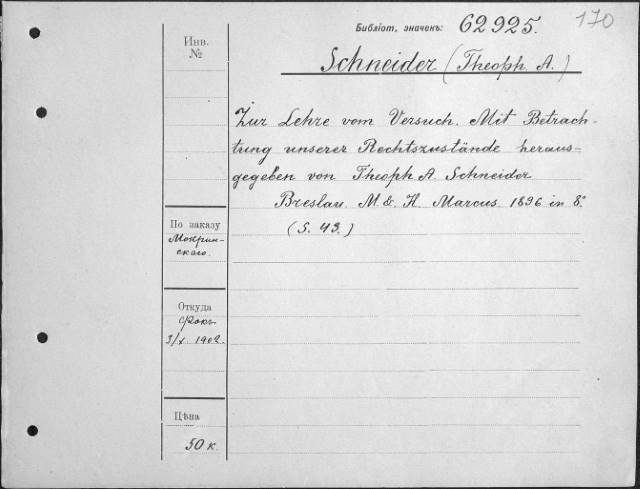 170
Библіот. значекъ: 62925.
Инв.
№
Schneider (Theoph. A.)
Zur Lehre vom Versuch. Mit Betrach-
tung unserer Rechtszustände heraus-
gegeben von Theoph A. Schneider
Breslau. M. & H. Marcus. 1896 in 8°
(S. 43.)
По заказу
Мокрин-
скаго.
Откуда
3/X. 1902.
Цѣна
50 к.